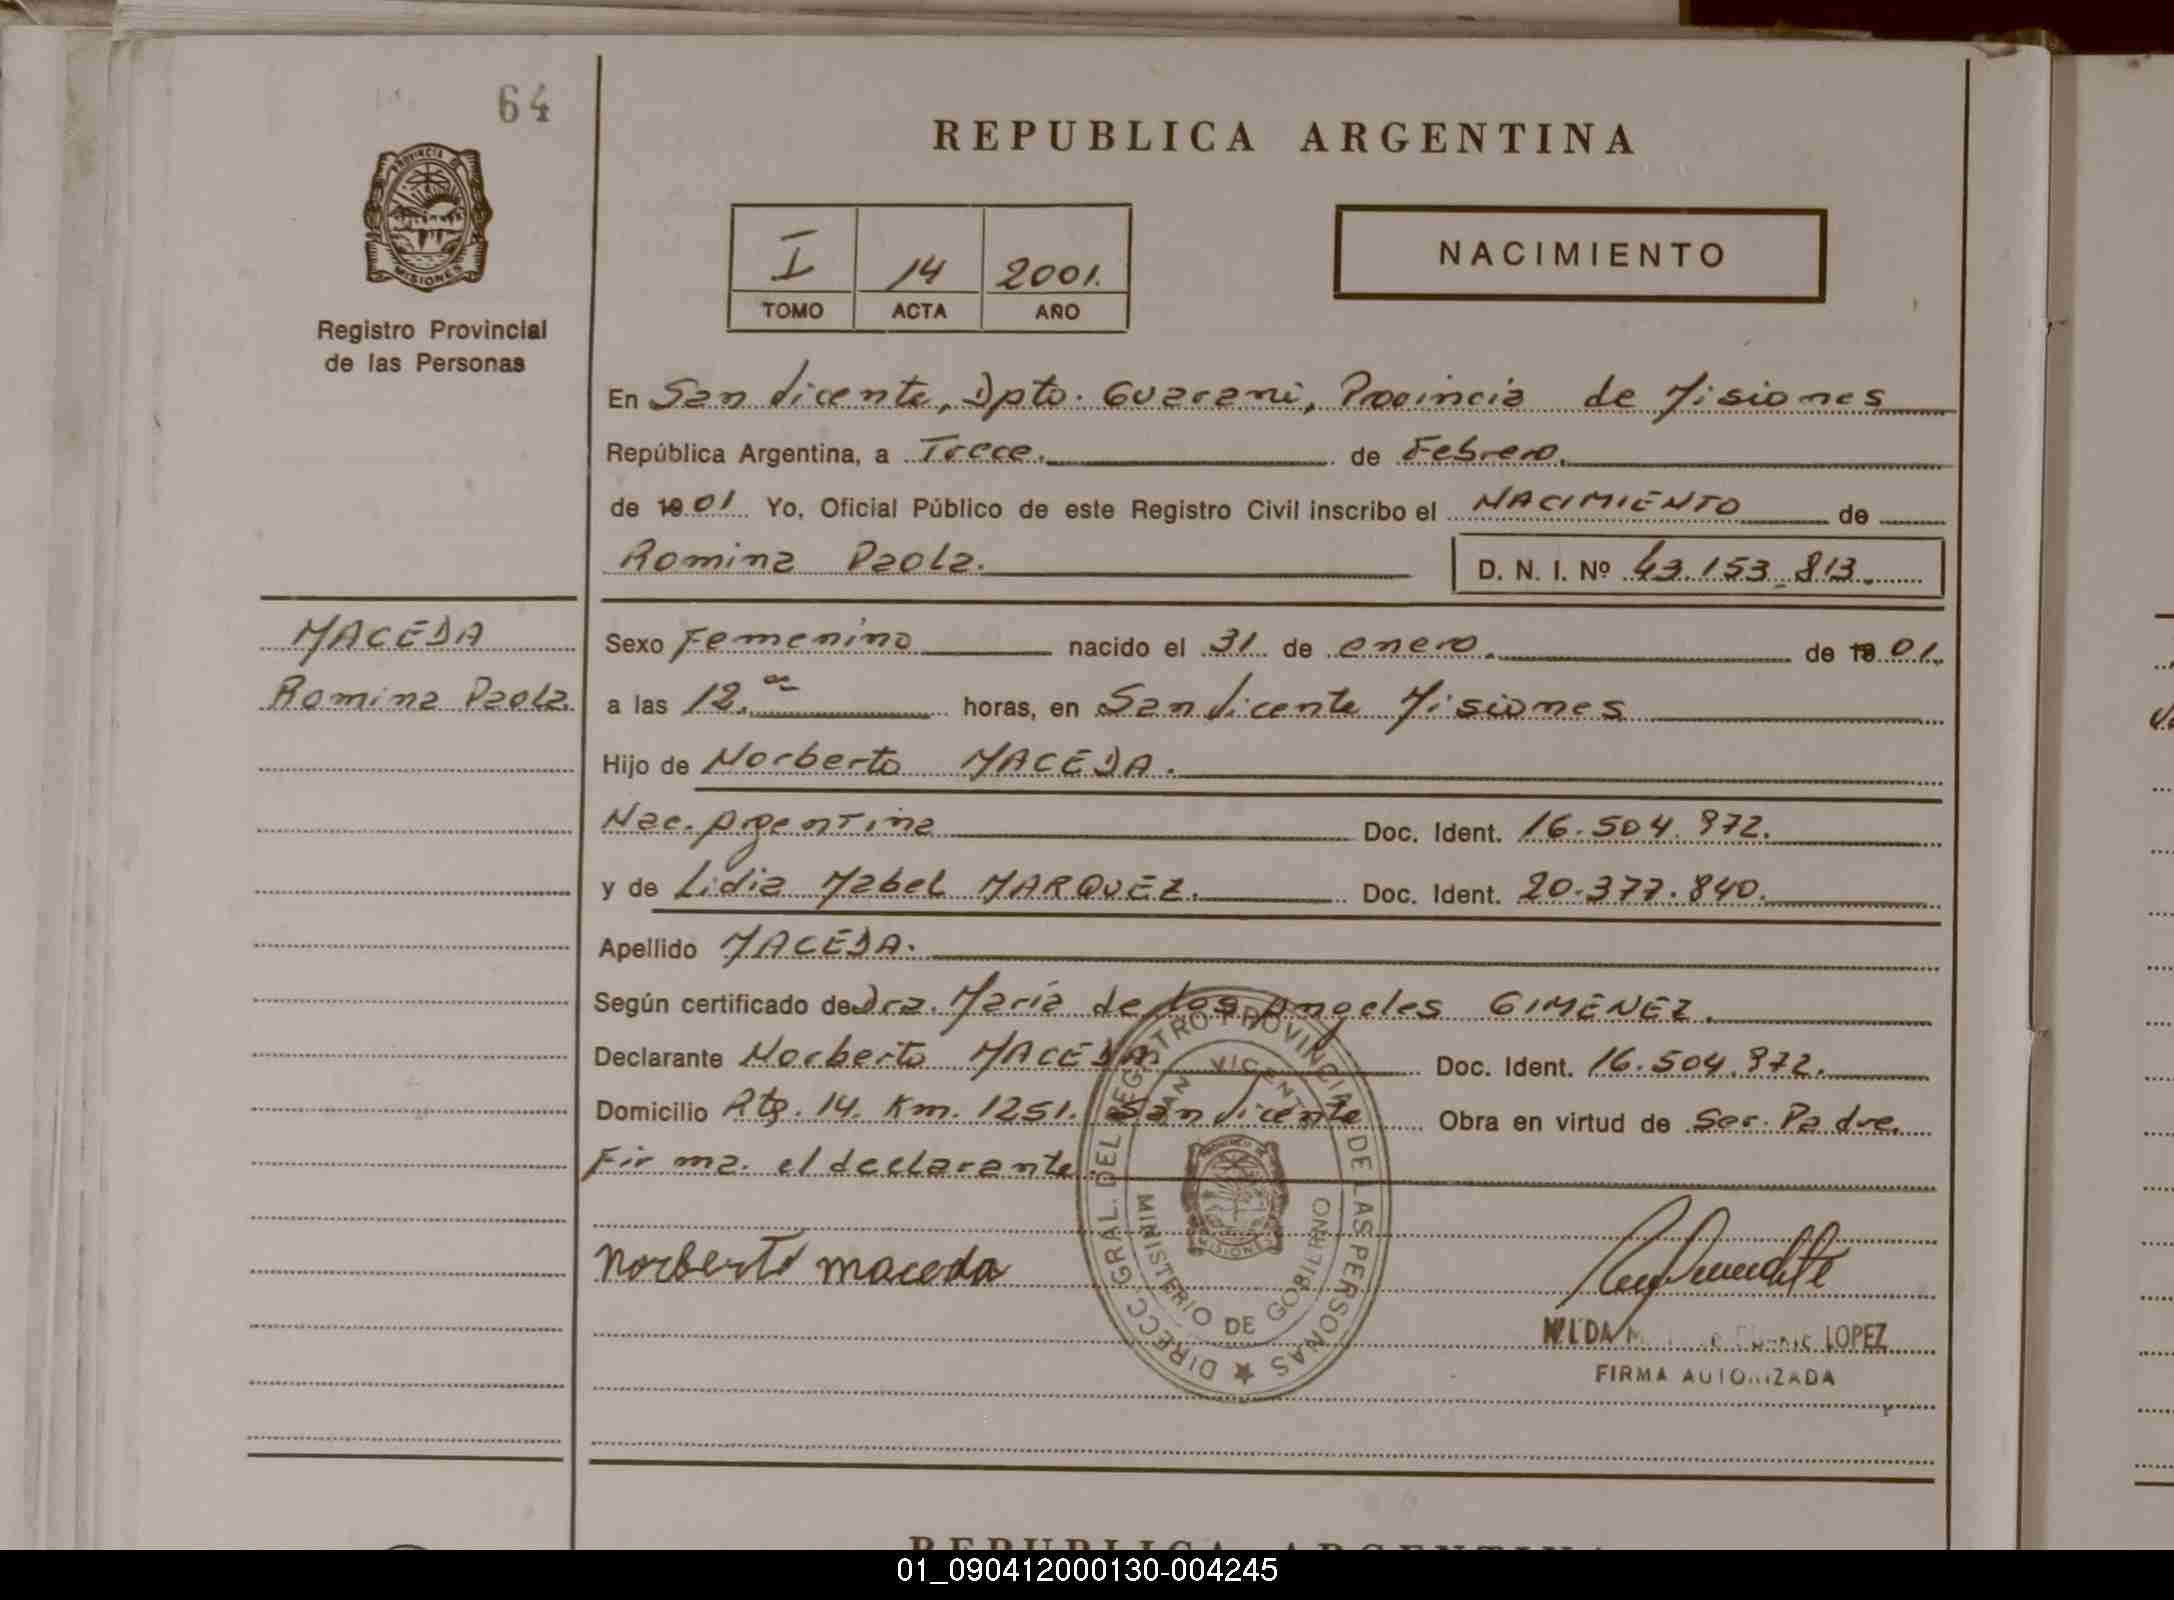 64
REPUBLICA ARGENTINA
PROVINCIA DE
MISIONES
Registro Provincial
de las Personas
I 14 2001.
TOMO ACTA AÑO
NACIMIENTO
En San Vicente, Dpto. Guarani, Provincia de Misiones
República Argentina, a Trece. de Febrero.
de 01 Yo, Oficial Público de este Registro Civil inscribo el NACIMIENTO de
Romina Paola. D. N. I. Nº 43.153.813.
MACEDA
Romina Paola.
Sexo Femenino nacido el 31 de enero. de 01.
a las 12. horas, en San Vicente Misiones
Hijo de Norberto MACEDA.
Nac. Argentina Doc. Ident. 16.504.972.
y de Lidia Mabel MARQUEZ. Doc. Ident. 20.377.840.
Apellido MACEDA.
Según certificado de Dra. María de los Angeles GIMENEZ.
Declarante Norberto MACEDA Doc. Ident. 16.504.972.
Domicilio Rta. 14. Km. 1251. San Vicente Obra en virtud de Ser. Padre.
Firma. el declarante.
norberto maceda
DIRECC. GRAL. DEL REGISTRO PROVINCIAL DE LAS PERSONAS
SAN VICENTE
MINISTERIO DE GOBIERNO
MISIONES
LOPEZ
FIRMA AUTORIZADA
REPUBLICA ARGENTINA
01_090412000130-004245